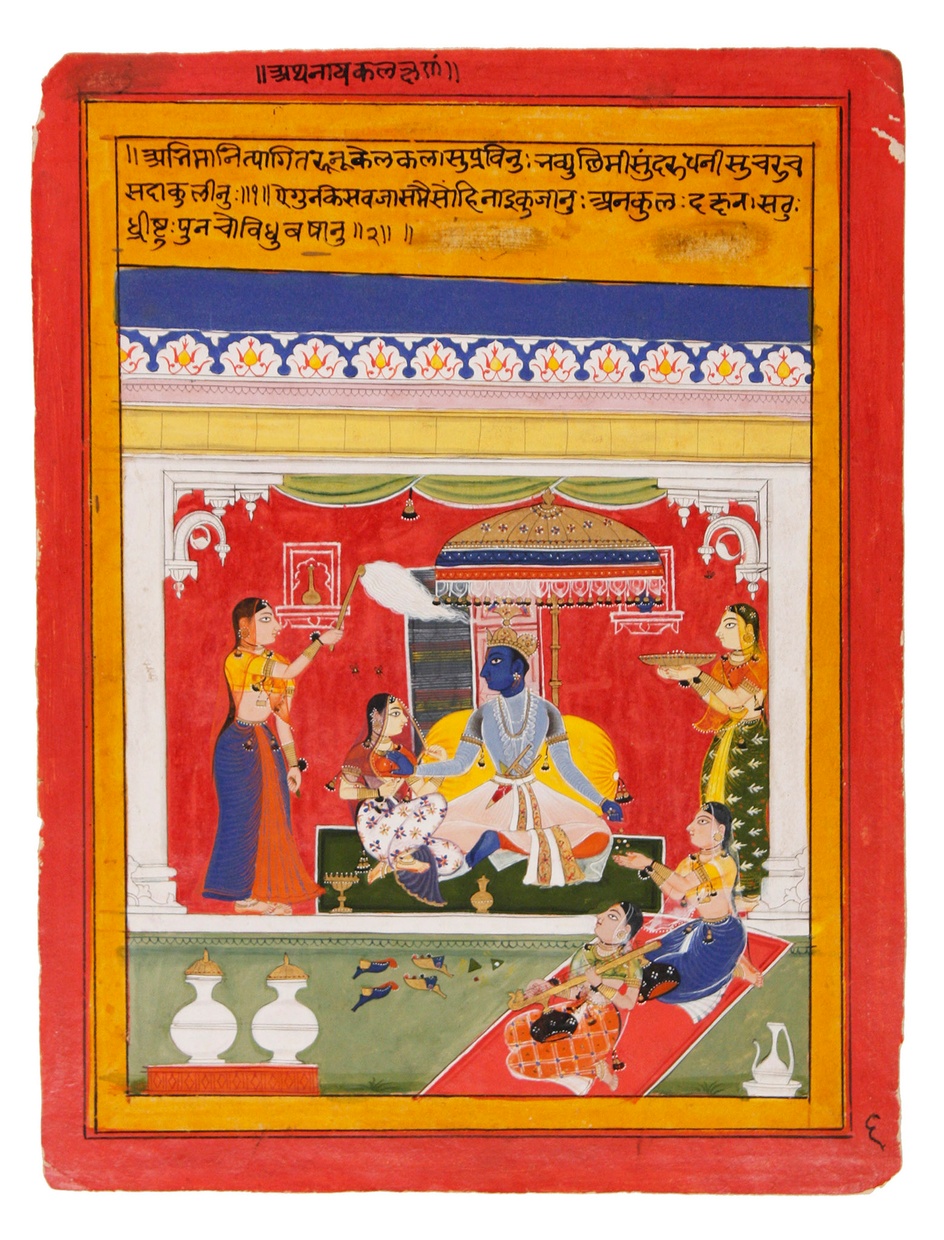 ॥अथनायकलक्षणं॥
॥अभिमानित्यागितरूनूकेलकलासुप्रविनु:नव्युछिमीसुंदरूधनीसुचरुच
सदाकुलीनु:॥१॥ऐगुनकेसवजासमैसोहिनाइकुजानु:अनकुल:दछन।सठ:
ध्रीष्ट:पुनचौविधुबषानु॥२॥॥
६